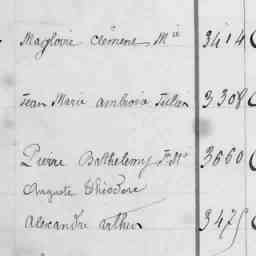 Magloire Clément Mie 3414
Jean Marie ambroise Julien 3308
Pierre Barthelemy Fs Me 3660
Auguste Théodore
alexandre arthur 3475